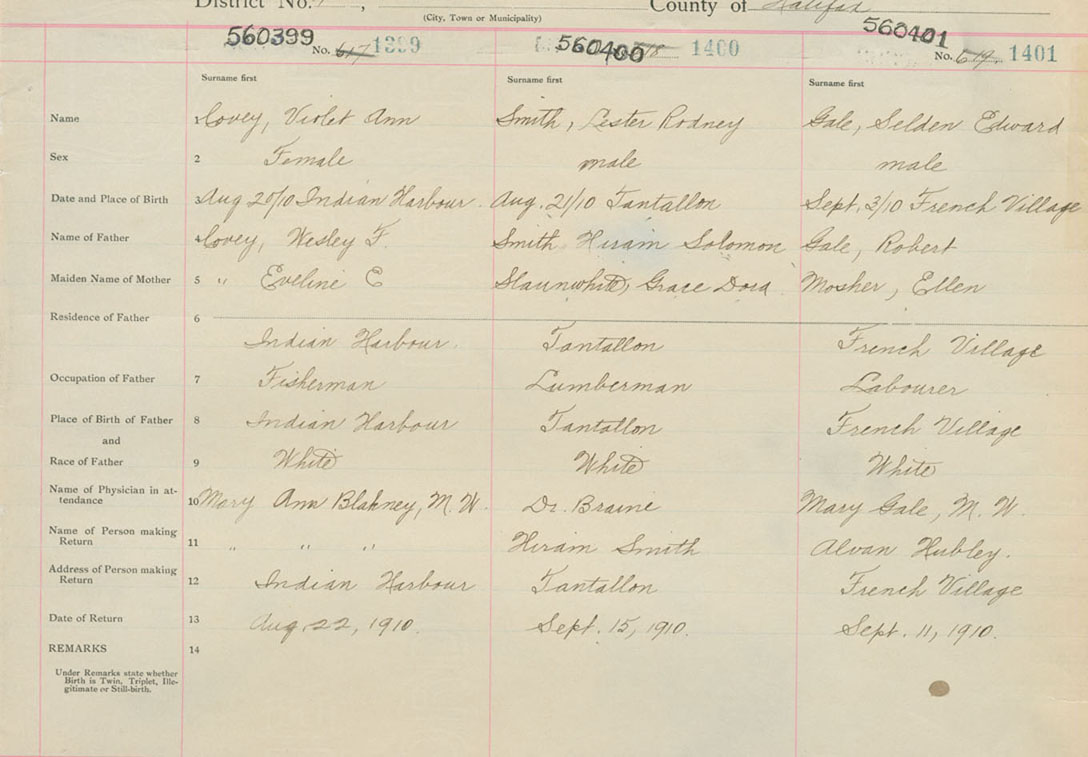 District No. , County of Halifax
(City, Town or Municipality)
560399 560400 560401
No. 617 1399 618 1400 No. 619. 1401
Surname first Surname first Surname first
Name 1 Covey, Violet Ann Smith, Lester Rodney Gale, Selden Edward
Sex 2 Female male male
Date and Place of Birth 3 Aug 20/10 Indian Harbour. Aug. 21/10 Tantallon Sept. 3/10 French Village
Name of Father 4 Covey, Wesley F. Smith Hiram Solomon Gale, Robert
Maiden Name of Mother 5 " Eveline C Slaunwhite, Grace Dora Mosher, Ellen
Residence of Father 6
Indian Harbour. Tantallon French Village
Occupation of Father 7 Fisherman Lumberman Labourer
Place of Birth of Father 8 Indian Harbour Tantallon French Village
and
Race of Father 9 White White White
Name of Physician in at-
tendance 10 Mary Ann Blakney, M. W. Dr. Braine Mary Gale, M. W.
Name of Person making
Return 11 " " " Hiram Smith Alvan Hubley.
Address of Person making
Return 12 Indian Harbour Tantallon French Village
Date of Return 13 Aug. 22, 1910. Sept. 15, 1910. Sept. 11, 1910.
REMARKS 14
Under Remarks state whether
Birth is Twin, Triplet, Ille-
gitimate or Still-birth.